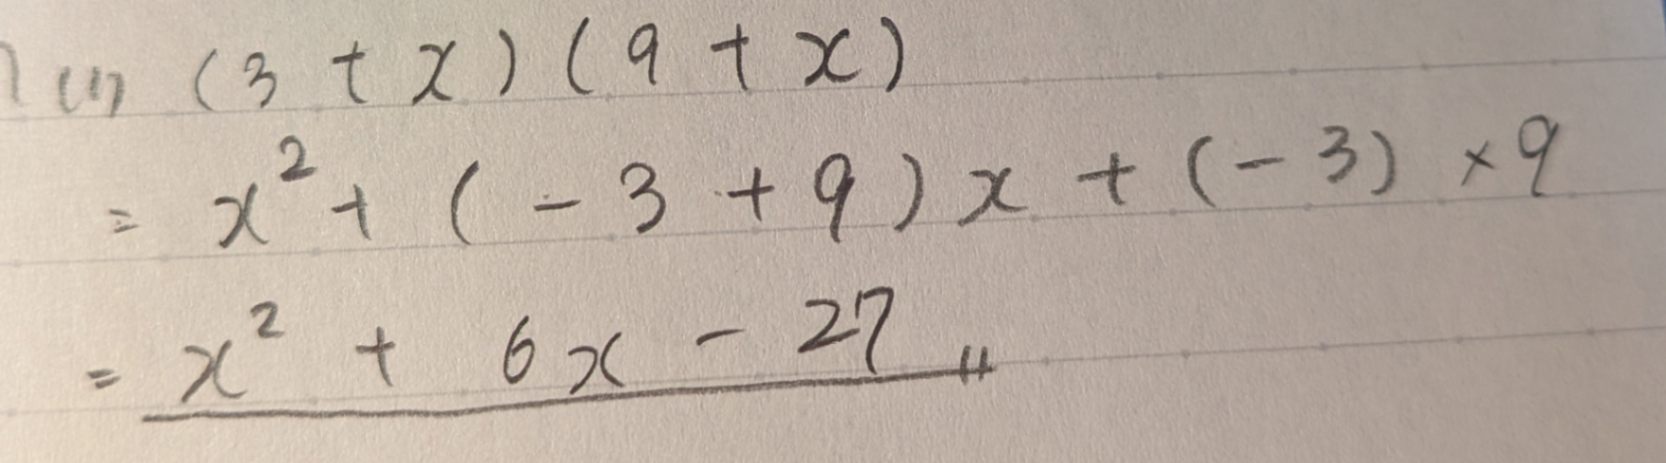 (1) (3 + x) (9 + x)
= x² + (-3 + 9) x + (-3) × 9
= x² + 6x - 27 〃